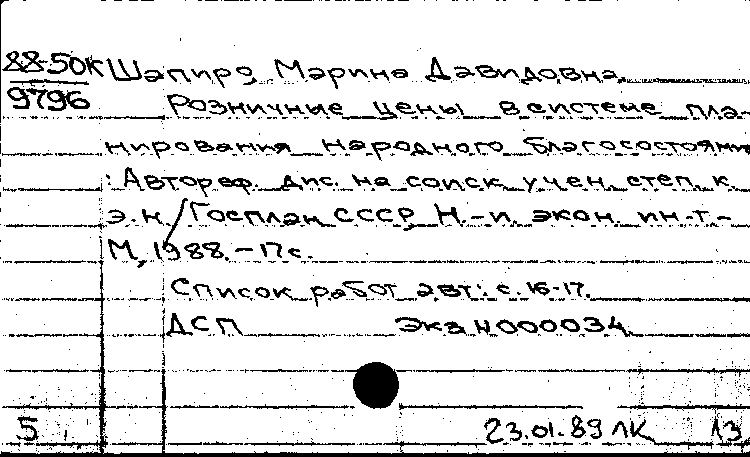 88-50К Шапиро, Марина Давидовна.
9796 Розничные цены в системе пла-
нирования народного благосостояния
: Автореф. дис. на соиск. учен. степ. к.
э. н. / Госплан СССР, Н.-и. экон. ин-т.-
М., 1988. - 17 с.
Список работ авт.: с. 16-17.
ДСП Экз N000034
5 23.01.89 ЛК 13